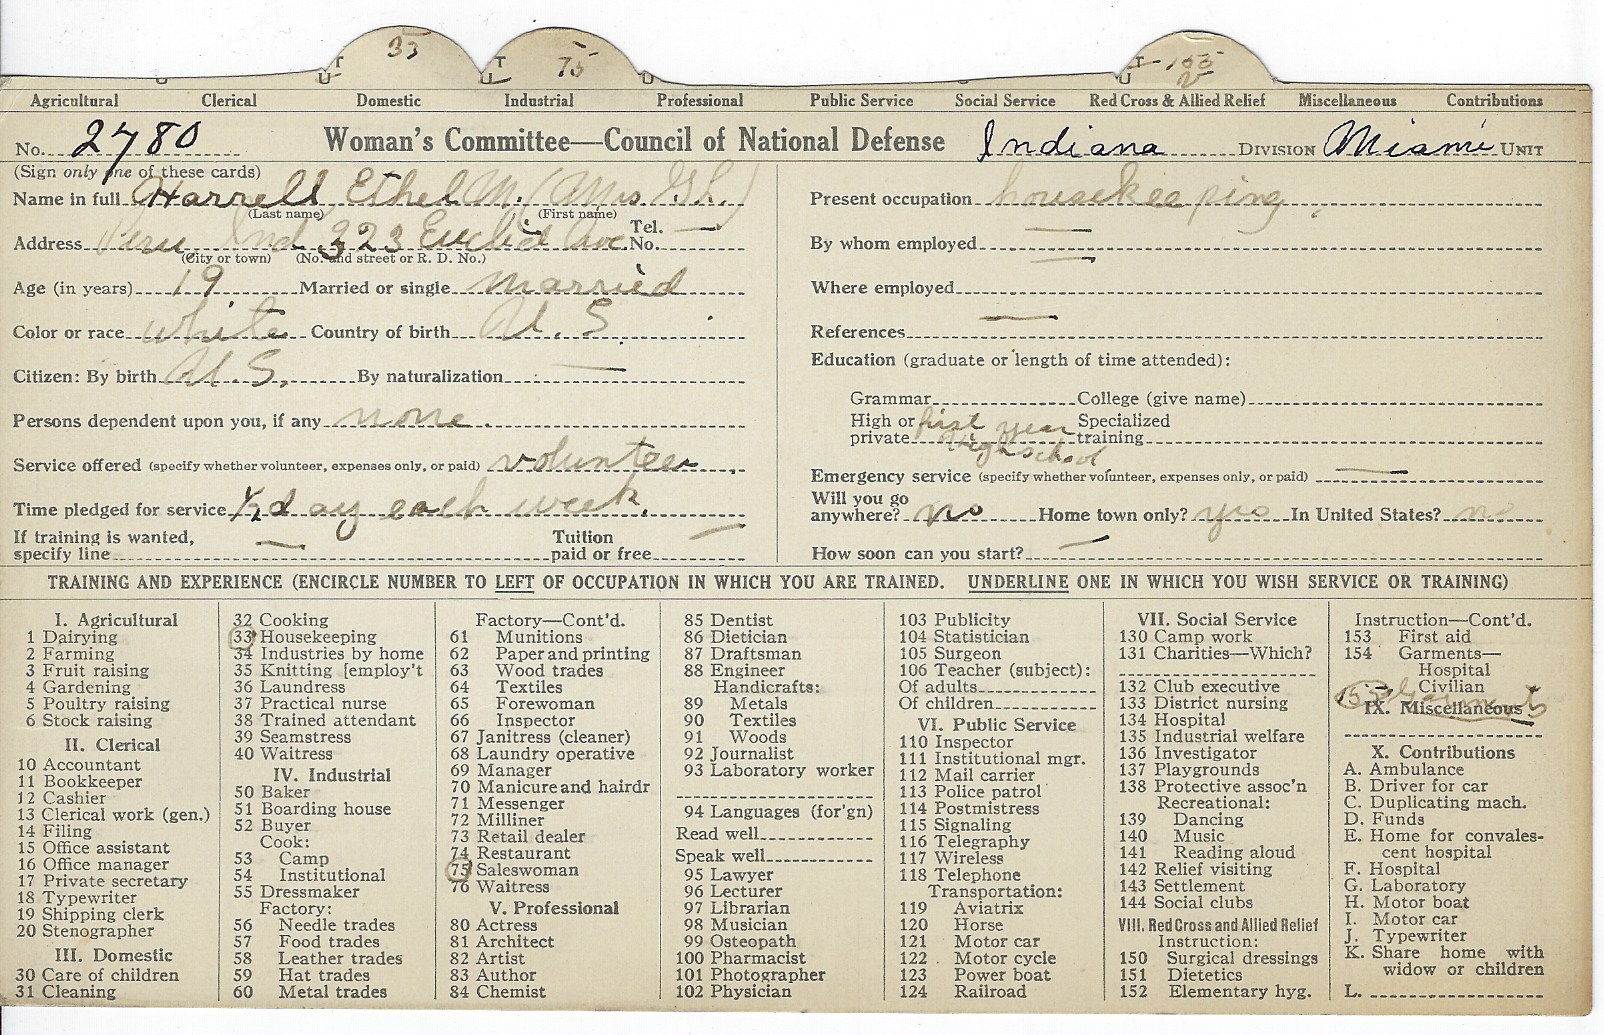 33 75 155
T T T V
U U U U U
Agricultural Clerical Domestic Industrial Professional Public Service Social Service Red Cross & Allied Relief Miscellaneous Contributions
No. 2780 Woman's Committee—Council of National Defense Indiana DIVISION Miami UNIT
(Sign only one of these cards)
Name in full Harrell Ethel M. (Mrs. G.L.)
(Last name) (First name)
Address Peru, Ind 323 Euclid Ave. Tel. No. —
(City or town) (No. and street or R. D. No.)
Age (in years) 19 Married or single married
Color or race white Country of birth U. S.
Citizen: By birth U.S. By naturalization —
Persons dependent upon you, if any none.
Service offered (specify whether volunteer, expenses only, or paid) volunteer
Time pledged for service 1/2 day each week.
If training is wanted,
specify line — Tuition
paid or free —
Present occupation housekeeping
By whom employed —
Where employed —
References —
Education (graduate or length of time attended):
Grammar College (give name)
High or private first year High school Specialized training
Emergency service (specify whether volunteer, expenses only, or paid) —
Will you go
anywhere? no Home town only? yes In United States? no
How soon can you start? —
TRAINING AND EXPERIENCE (ENCIRCLE NUMBER TO LEFT OF OCCUPATION IN WHICH YOU ARE TRAINED. UNDERLINE ONE IN WHICH YOU WISH SERVICE OR TRAINING)
I. Agricultural
1 Dairying
2 Farming
3 Fruit raising
4 Gardening
5 Poultry raising
6 Stock raising
II. Clerical
10 Accountant
11 Bookkeeper
12 Cashier
13 Clerical work (gen.)
14 Filing
15 Office assistant
16 Office manager
17 Private secretary
18 Typewriter
19 Shipping clerk
20 Stenographer
III. Domestic
30 Care of children
31 Cleaning
32 Cooking
33 Housekeeping
34 Industries by home
35 Knitting [employ't
36 Laundress
37 Practical nurse
38 Trained attendant
39 Seamstress
40 Waitress
IV. Industrial
50 Baker
51 Boarding house
52 Buyer
Cook:
53 Camp
54 Institutional
55 Dressmaker
Factory:
56 Needle trades
57 Food trades
58 Leather trades
59 Hat trades
60 Metal trades
Factory—Cont'd.
61 Munitions
62 Paper and printing
63 Wood trades
64 Textiles
65 Forewoman
66 Inspector
67 Janitress (cleaner)
68 Laundry operative
69 Manager
70 Manicure and hairdr
71 Messenger
72 Milliner
73 Retail dealer
74 Restaurant
75 Saleswoman
76 Waitress
V. Professional
80 Actress
81 Architect
82 Artist
83 Author
84 Chemist
85 Dentist
86 Dietician
87 Draftsman
88 Engineer
Handicrafts:
89 Metals
90 Textiles
91 Woods
92 Journalist
93 Laboratory worker
94 Languages (for'gn)
Read well
Speak well
95 Lawyer
96 Lecturer
97 Librarian
98 Musician
99 Osteopath
100 Pharmacist
101 Photographer
102 Physician
103 Publicity
104 Statistician
105 Surgeon
106 Teacher (subject):
Of adults
Of children
VI. Public Service
110 Inspector
111 Institutional mgr.
112 Mail carrier
113 Police patrol
114 Postmistress
115 Signaling
116 Telegraphy
117 Wireless
118 Telephone
Transportation:
119 Aviatrix
120 Horse
121 Motor car
122 Motor cycle
123 Power boat
124 Railroad
VII. Social Service
130 Camp work
131 Charities—Which?
132 Club executive
133 District nursing
134 Hospital
135 Industrial welfare
136 Investigator
137 Playgrounds
138 Protective assoc'n
Recreational:
139 Dancing
140 Music
141 Reading aloud
142 Relief visiting
143 Settlement
144 Social clubs
VIII. Red Cross and Allied Relief
Instruction:
150 Surgical dressings
151 Dietetics
152 Elementary hyg.
Instruction—Cont'd.
153 First aid
154 Garments—
Hospital
Civilian
155 Garments
IX. Miscellaneous
X. Contributions
A. Ambulance
B. Driver for car
C. Duplicating mach.
D. Funds
E. Home for convales-
cent hospital
F. Hospital
G. Laboratory
H. Motor boat
I. Motor car
J. Typewriter
K. Share home with
widow or children
L.